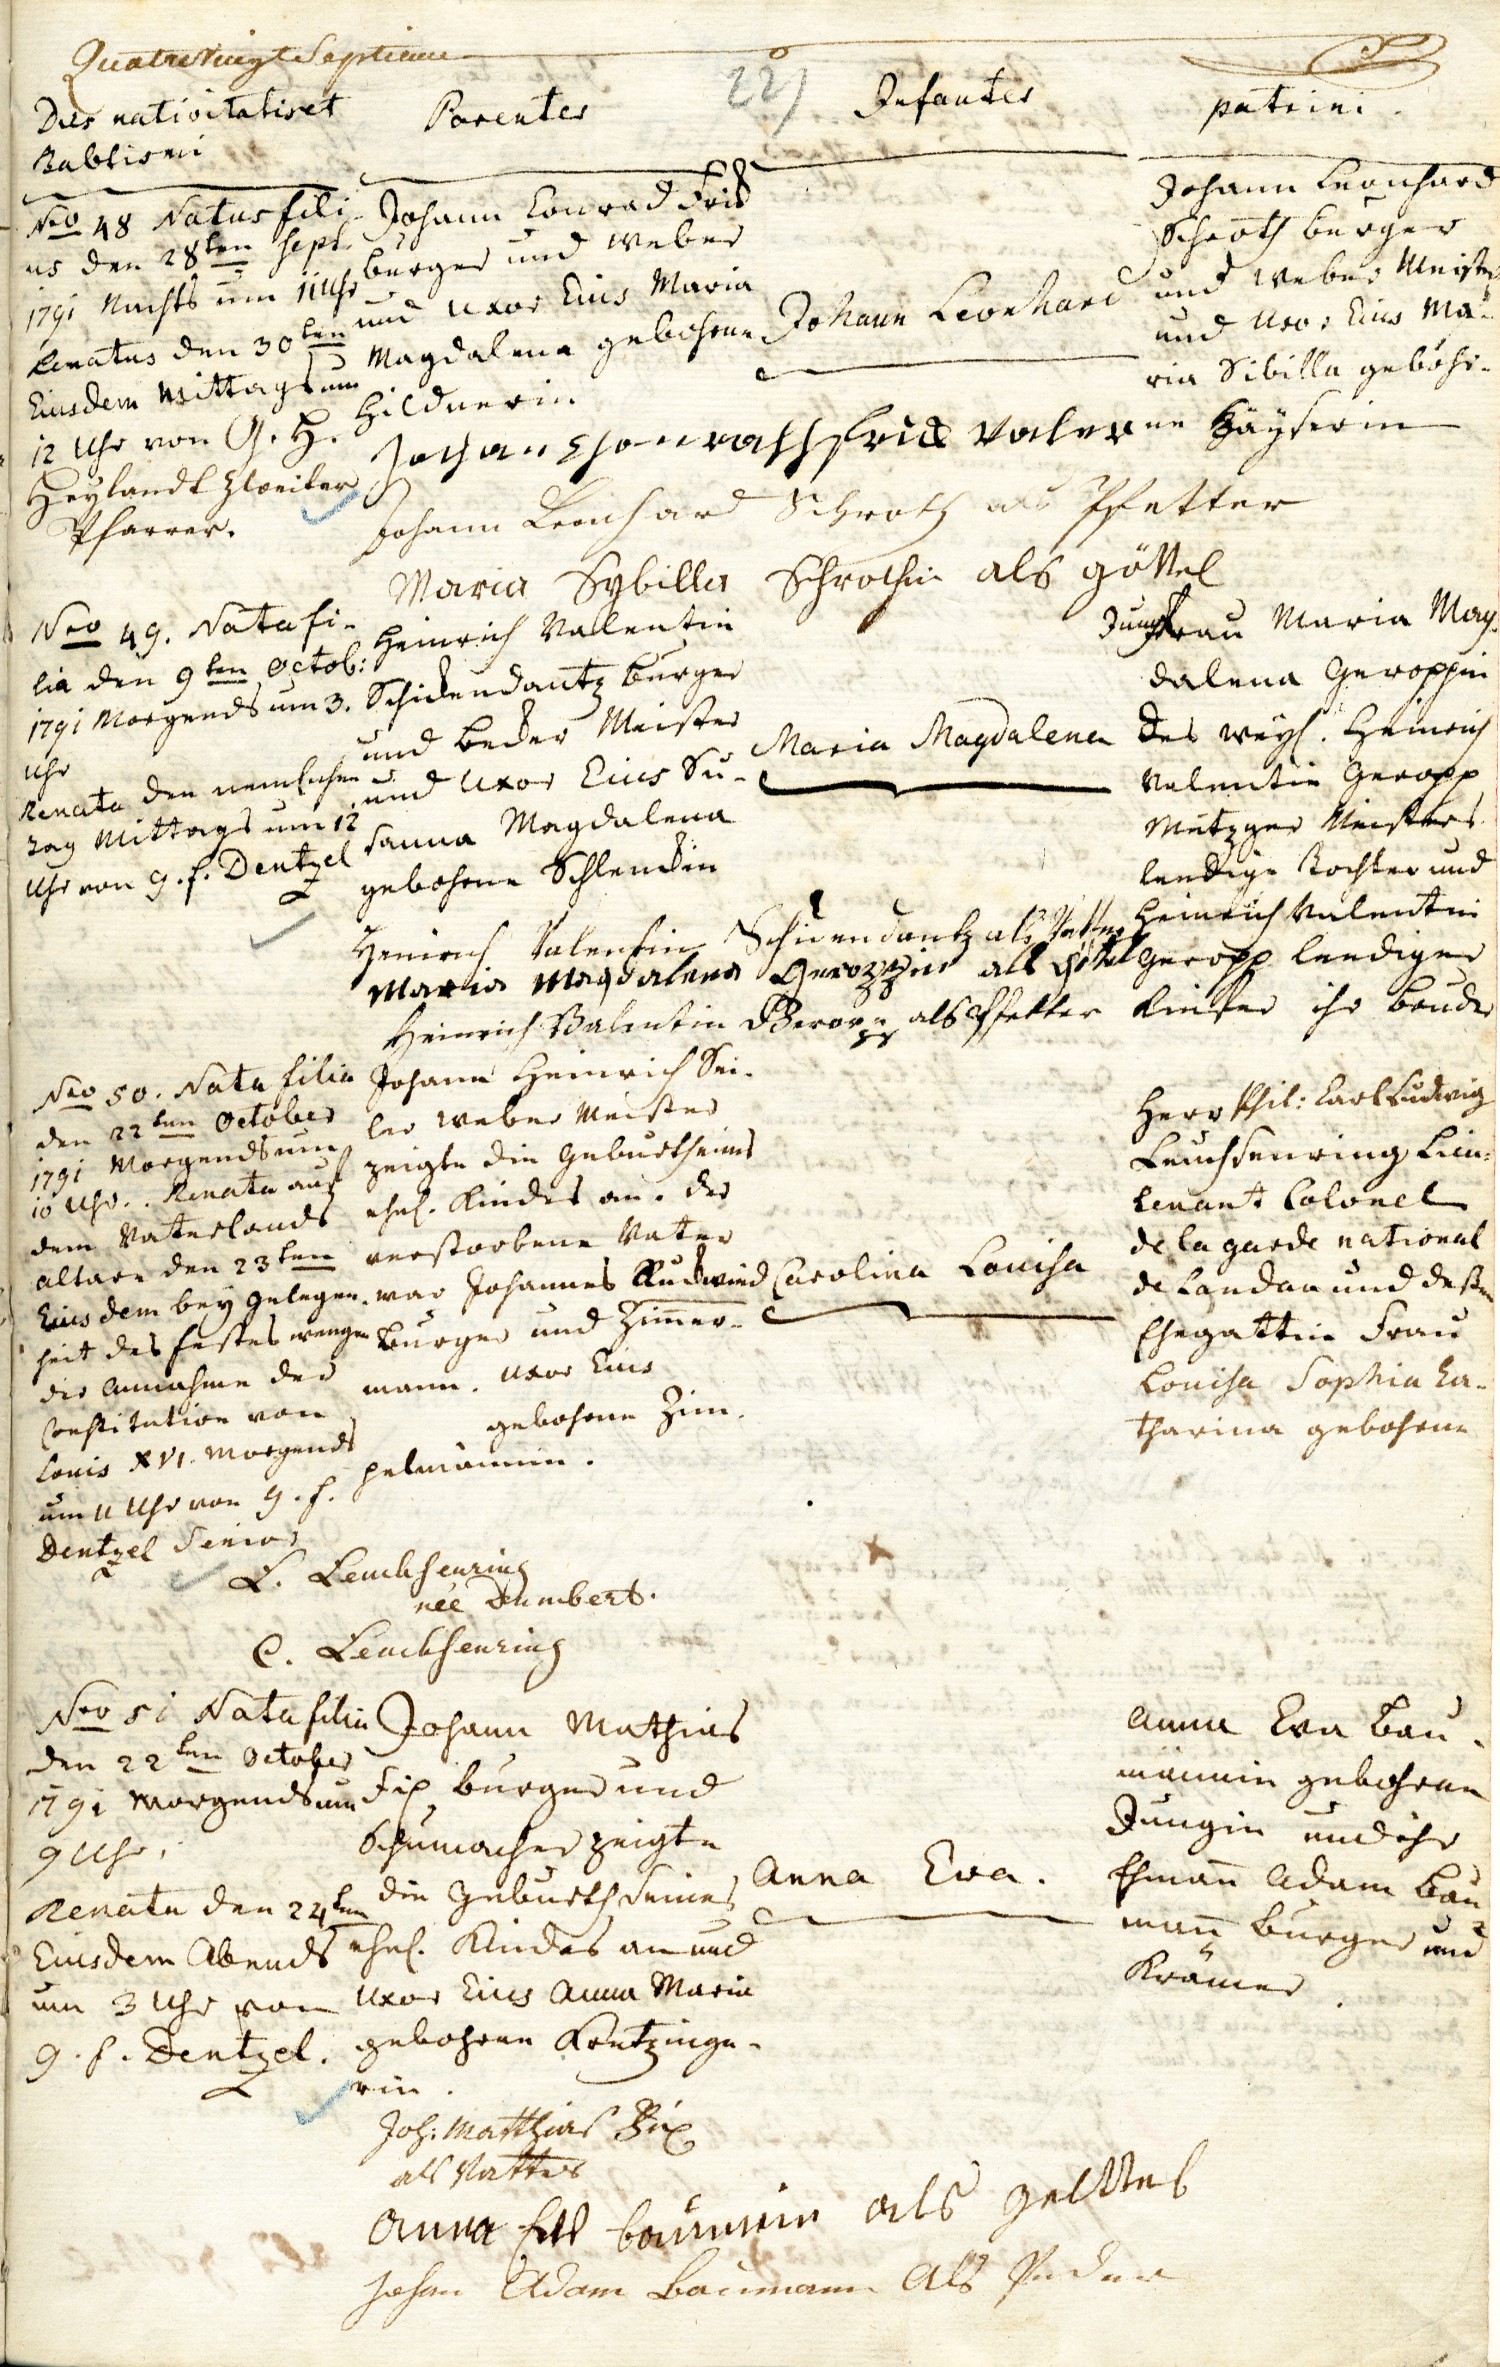 Quatrevingt Septieme
22)
Dies nativitatis et
Babtismi
Parentes
Infantes
patrini.
Nro 48 Natus fili-
us den 28ten Sept.
1791 Nachts um 11 Uhr
Renatus den 30ten
Eiusdem Mittags um
12 Uhr von G. H.
Heylandt Zweiter
Pfarrer.
Johann Conrad Fris
burger und Weber
und Uxor Eius Maria
Magdalena gebohrne
Hildnerin
Johann Leonhard
Johann Leonhard
Schroth burger
und Weber Meister
und Uxor Eius Ma-
ria Sibilla gebohr-
ne Häyserin
Johan Chonrath Fris Vater
Johann Leonhard Schroth als Pfetter
Maria Sybilla Schrothin als göttel
Nro 49. Nata fi-
lia den 9ten Octob:
1791 Morgends um 3.
Uhr
Renata den nemlichen
Tag Mittags um 12
Uhr von G. F. Dentzel
Heinrich Valentin
Schidendantz burger
und Becker Meister
und Uxor Eius Su-
sanna Magdalena
gebohrne Schlenckin
Maria Magdalena
Jungfrau Maria Mag-
dalena Geroppin
des weyl. Heinrich
Valentin Geropp
Metzger Meisters
leedige Tochter und
Heinrich Valentin
Geropp leediger
Kiefer ihr bruder
Heinrich Valentin Schidendantz als Vatter
Maria Magdalena Geroppin als göttel
Heinrich Valentin Geropp als Pfetter
Nro 50. Nata filia
den 22ten October
1791 Morgends um
10 Uhr. Renata auf
dem Vaterlands
altare den 23ten
Eiusdem bey gelegen-
heit des Festes wegen
der Annahme der
Constitution von
Louis XVI. Morgends
um 11 Uhr von G. F.
Dentzel Senior
Johann Heinrich Sei-
ler Weber Meister
zeigte die Geburth eines
ehel. Kindes an. der
verstorbene Vater
war Johannes Rudwied
Burger und Zimmer-
mann. Uxor Eius
gebohrne Zim-
pelmännin.
Carolina Louisa
Herr Phil: Carl Ludwig
Leuchsenring Lieu-
tenant Colonel
de la garde national
de Landau und deßen
Ehegattin Frau
Louisa Sophia Ca-
tharina gebohrne
L. Leuchsenring
née Dumbert.
C. Leuchsenring
Nro 51 Nata filia
den 22ten October
1791 Morgends um
9 Uhr.
Renata den 24ten
Eiusdem Abends
um 3 Uhr von
G. F. Dentzel.
Johann Mathias
Fix burger und
Schumacher zeigte
die Geburth seines
ehel. Kindes an und
Uxor Eius Anna Maria
gebohrne Krntzinge-
rin.
Anna Eva.
Anna Eva Bau-
männin gebohrne
Jungin und ihr
Ehmañ Adam Bau
mañ burger und
Krämer.
Joh: Matthias Fix
als Vatter
Anna Efa baumein als
Johan Adam Baumann als